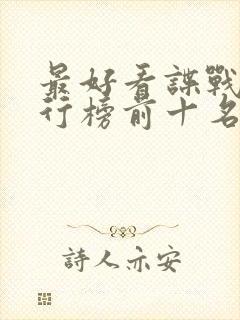 最好看諜戰
行榜前十名
詩人亦安